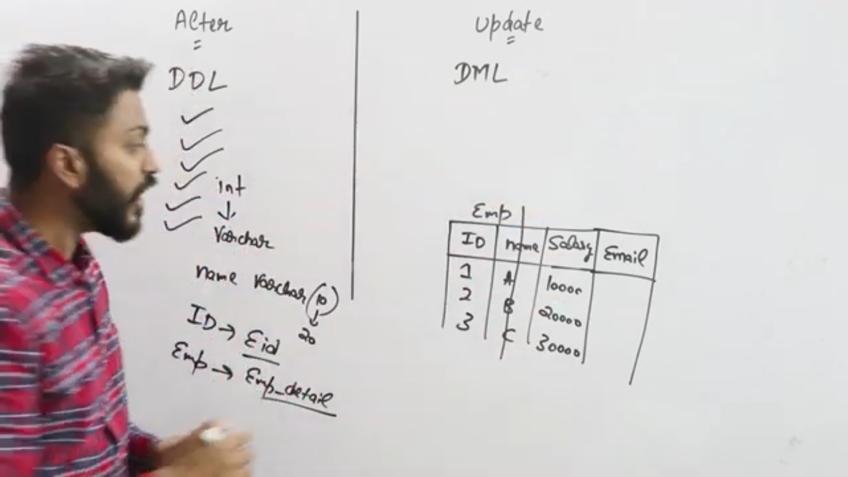 Alter
DDL
int
Varchar
name varchar 10
20
ID → Eid
Emp → Emp_detail
Update
DML
Emp
ID name Salary Email
1 A 10000
2 B 20000
3 C 30000